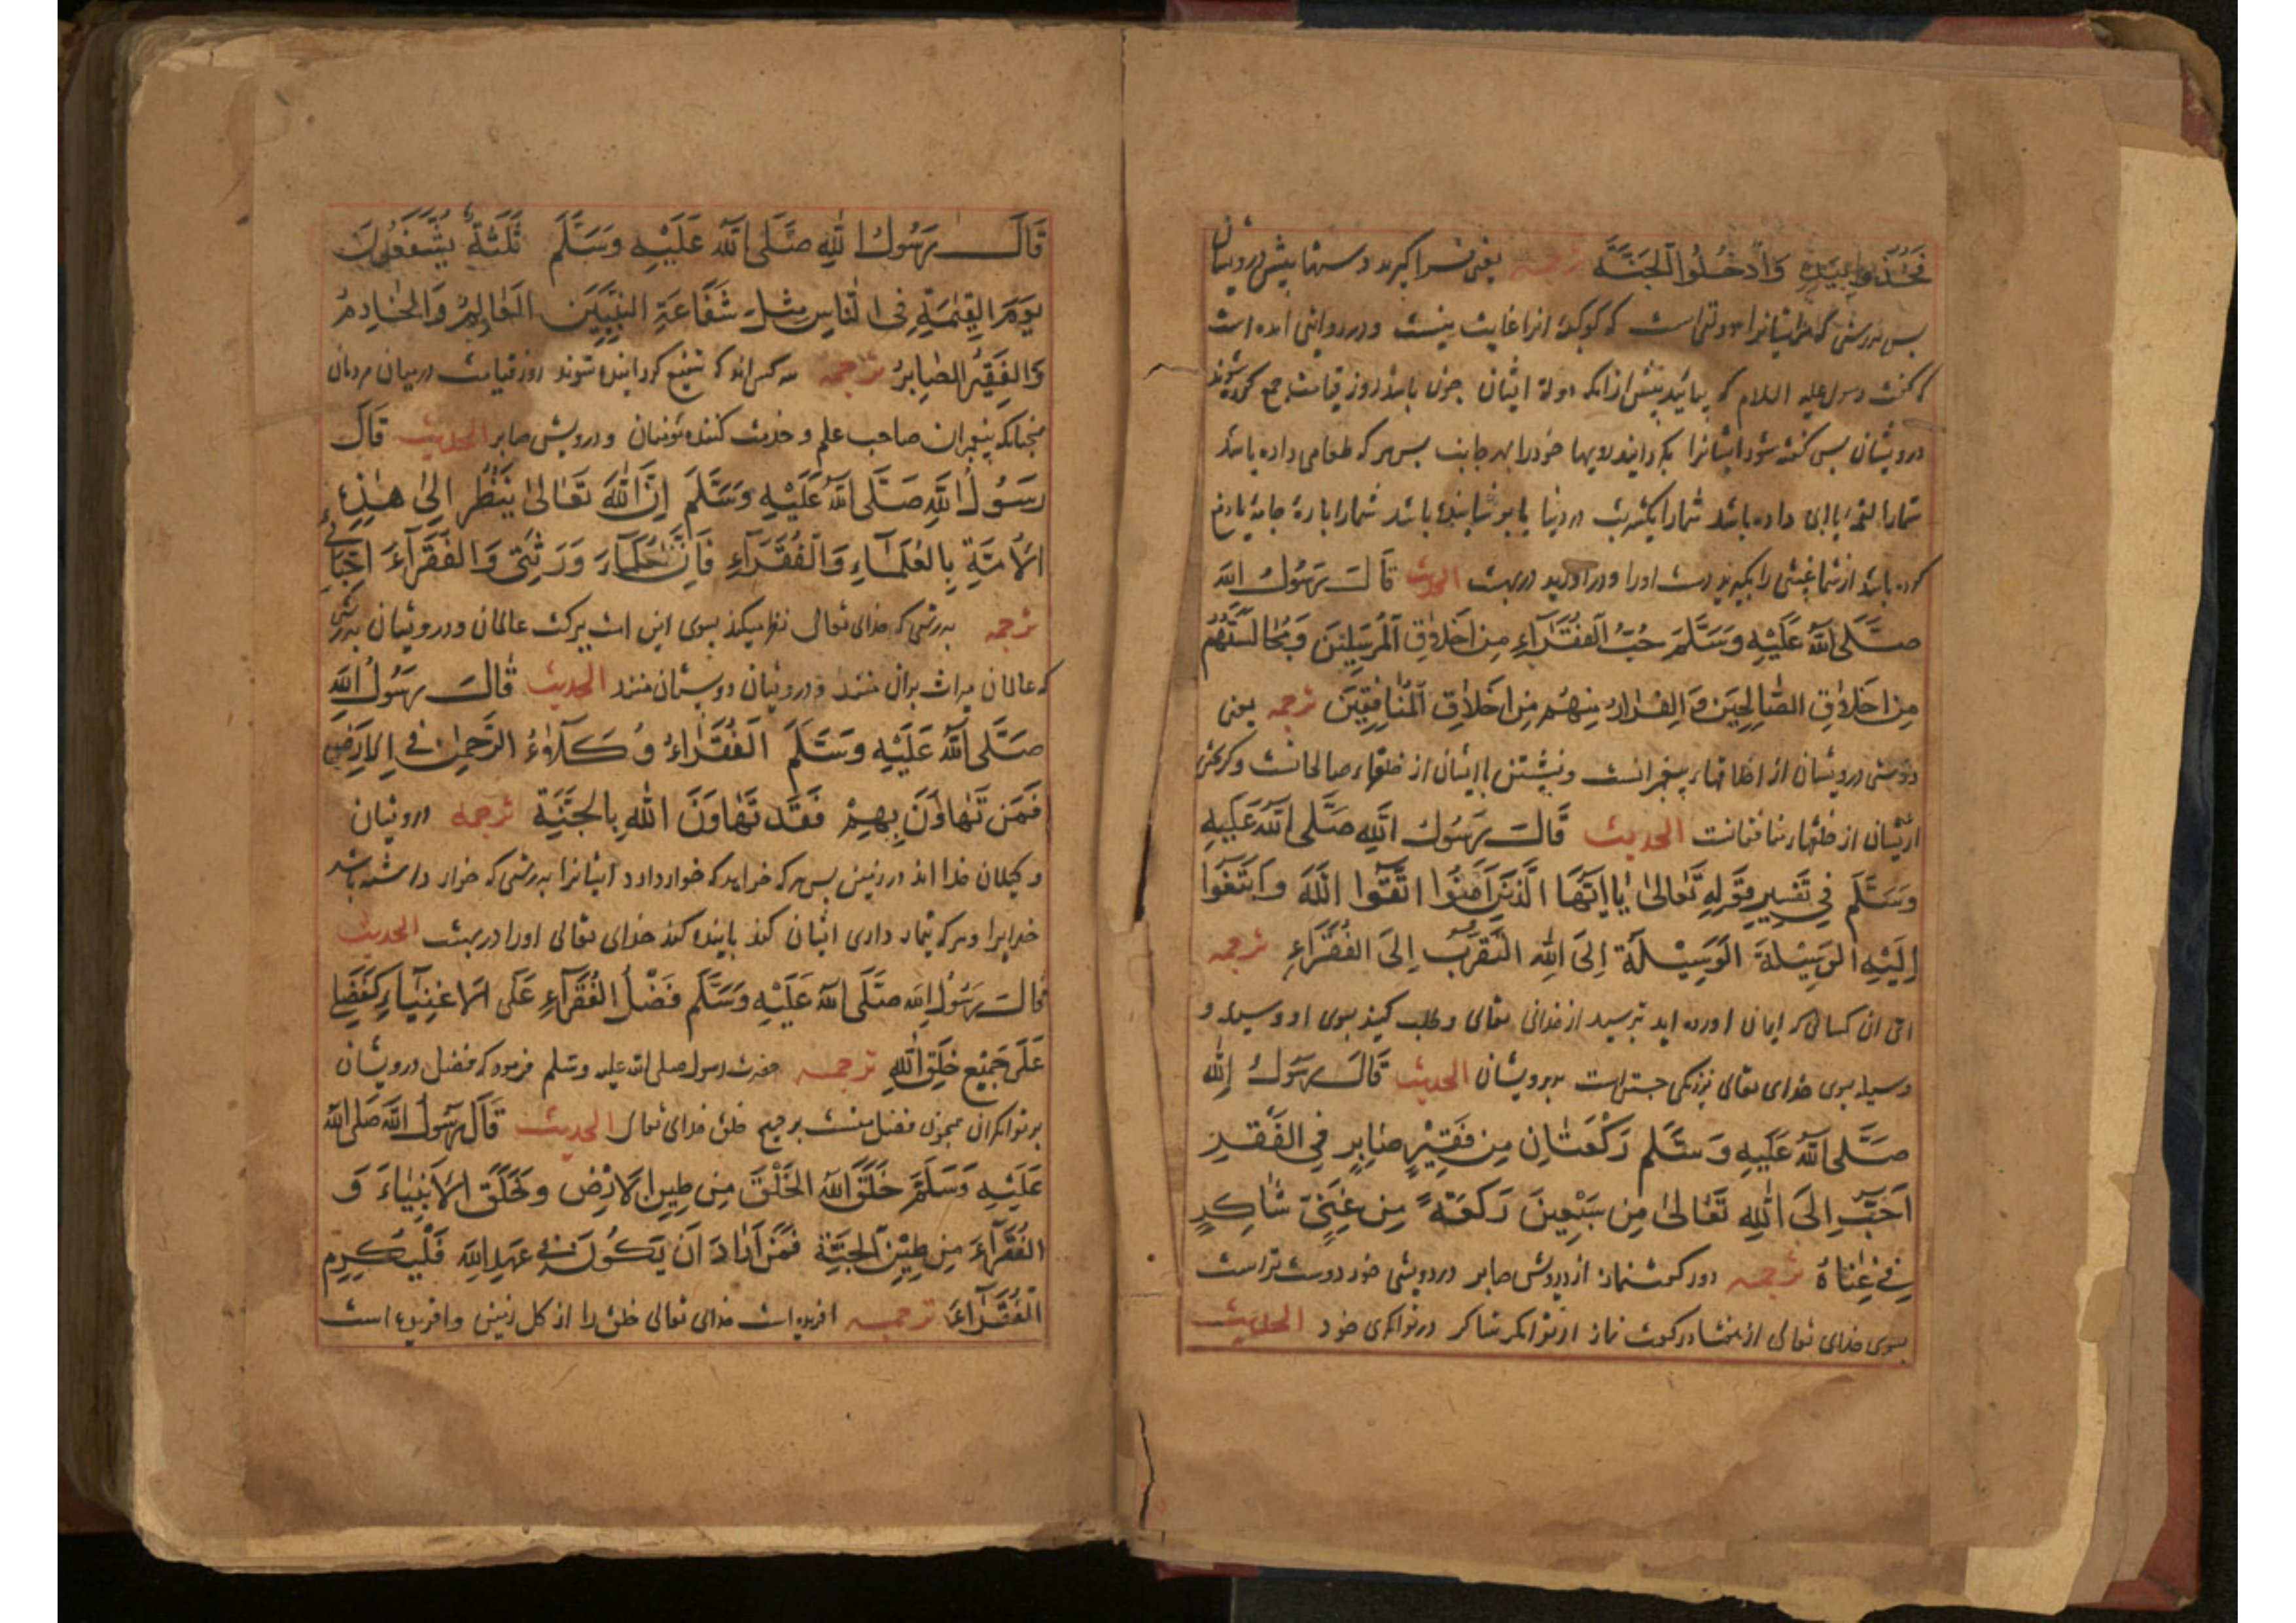 فَخُذُوا بِيَدِهِ وَادْخُلُوا الْجَنَّةَ ترجمه یعنی فرا کیرید دستها پیش درویشان
بس بدرستی که ایشانرا دولتی است که کوکبهٔ انرا غایت نیست و در روایتی امده است
که کفت رسول علیه السلام که بیائید پیش ازانکه دولة ایشان چون باشد روز قیامت جمع کرده شوند
درویشان بس کفته شود ایشانرا بکردانید رویها خود را بهر جانب بس هر که طعامی داده باشد
شمارا لقمهٔ یا ابی داده باشد شمارا یکشربت در دنیا یا پوشانیده باشد شمارا پارهٔ جامهٔ یا دفع
کرده باشد از شما غیبتی را بکیرید دست اورا و در اورید در بهشت الحدیث قَالَ رَسُولُ اللّٰه
صَلَّى اللّٰهُ عَلَيْهِ وَسَلَّمَ حُبُّ الْفُقَرَآءِ مِنْ اَخْلَاقِ الْمُرْسَلِيْنَ وَمُجَالَسَتُهُمْ
مِنْ اَخْلَاقِ الصَّالِحِيْنَ وَالْفِرَارُ مِنْهُمْ مِنْ اَخْلَاقِ الْمُنَافِقِيْنَ ترجمه یعنی
دوستی درویشان از اخلاقهاء پیغمبرانست و نشستن با ایشان از خلقهاء صالحانست و کریختن
ازیشان از خلقهاء منافقانست الحدیث قَالَ رَسُولُ اللّٰهِ صَلَّى اللّٰهُ عَلَيْهِ
وَسَلَّمَ فِي تَفْسِيرِ قَوْلِهِ تَعَالىٰ يَا اَيُّهَا الَّذِيْنَ اٰمَنُوا اتَّقُوا اللّٰهَ وَابْتَغُوا
اِلَيْهِ الْوَسِيْلَةَ الْوَسِيْلَةُ اِلَى اللّٰهِ التَّقَرُّبُ اِلَى الْفُقَرَآءِ ترجمه
ای ان کسانی که ایمان اورده اید بترسید از خدائی تعالی و طلب کنید بسوی او وسیله و
وسیله بسوی خدای تعالی نزدیکی جستن است بدرویشان الحدیث قَالَ رَسُولُ اللّٰهِ
صَلَّى اللّٰهُ عَلَيْهِ وَسَلَّم رَكْعَتَانِ مِنْ فَقِيْرٍ صَابِرٍ فِي الْفَقْرِ
اَحَبُّ اِلَى اللّٰهِ تَعَالىٰ مِنْ سَبْعِيْنَ رَكْعَةً مِنْ غَنِيٍّ شَاكِرٍ
فِي غِنَاهُ ترجمه دو رکعت نماز از درویش صابر در درویشی خود دوست تر است
بسوی خدای تعالی از هفتاد رکعت نماز از توانکر شاکر در توانکری خود الحدیث
قَالَ رَسُولُ اللّٰهِ صَلَّى اللّٰهُ عَلَيْهِ وَسَلَّمَ ثَلٰثَةٌ يُشَفَّعُونَ
يَوْمَ الْقِيٰمَةِ فِي النَّاسِ مِثْلَ شَفَاعَةِ النَّبِيِّيْنَ الْعَالِمُ وَالْخَادِمُ
وَالْفَقِيْرُ الصَّابِرُ ترجمه سه کس اند که شفیع کردانیده شوند روز قیامت درمیان مردمان
همچنانکه پیغمبران صاحب علم و خدمت کننده مؤمنان و درویش صابر الحدیث قَالَ
رَسُولُ اللّٰهِ صَلَّى اللّٰهُ عَلَيْهِ وَسَلَّمَ اِنَّ اللّٰهَ تَعَالىٰ يَنْظُرُ اِلىٰ هٰذِهِ
الْاُمَّةِ بِالْعُلَمَآءِ وَالْفُقَرَآءِ فَاِنَّ الْعُلَمَآءَ وَرَثَتِي وَالْفُقَرَآءَ اَحِبَّائِي
ترجمه بدرستی که خدای تعالی نظر میکند بسوی این امت ببرکت عالمان و درویشان بدرستی
که عالمان میراث بران منند و درویشان دوستان منند الحدیث قَالَ رَسُولُ اللّٰهِ
صَلَّى اللّٰهُ عَلَيْهِ وَسَلَّمَ الْفُقَرَاءُ وُكَلَآءُ الرَّحْمٰنِ فِي الْاَرْضِ
فَمَنْ تَهَاوَنَ بِهِمْ فَقَدْ تَهَاوَنَ اللّٰهَ بِالْجَنَّةِ ترجمه درویشان
وکیلان خدا اند در زمین بس هر که خواهد که خوار دارد ایشانرا بدرستی که خوار داشته باشد
خدایرا و هر که تیمار داری ایشان کند باینده کند خدای تعالی اورا در بهشت الحدیث
قَالَ رَسُولُ اللّٰهِ صَلَّى اللّٰهُ عَلَيْهِ وَسَلَّم فَضْلُ الْفُقَرَآءِ عَلَى الْاَغْنِيَآءِ كَفَضْلِي
عَلَى جَمِيْعِ خَلْقِ اللّٰهِ ترجمه حضرت رسول صلی الله علیه وسلم فرمود که فضل درویشان
بر توانکران همچون فضل منست بر جمیع خلق خدای تعالی الحدیث قَالَ رَسُولُ اللّٰهِ صَلَى اللّٰهُ
عَلَيْهِ وَسَلَّمَ خَلَقَ اللّٰهُ الْخَلْقَ مِنْ طِيْنِ الْاَرْضِ وَخَلَقَ الْاَنْبِيَاءَ وَ
الْفُقَرَآءَ مِنْ طِيْنِ الْجَنَّةِ فَمَنْ اَرَادَ اَنْ يَكُونَ فِي عَهْدِ اللّٰهِ فَلْيُكْرِمِ
الْفُقَرَآءَ ترجمه افریده است خدای تعالی خلق را از کل زمین و افریده است